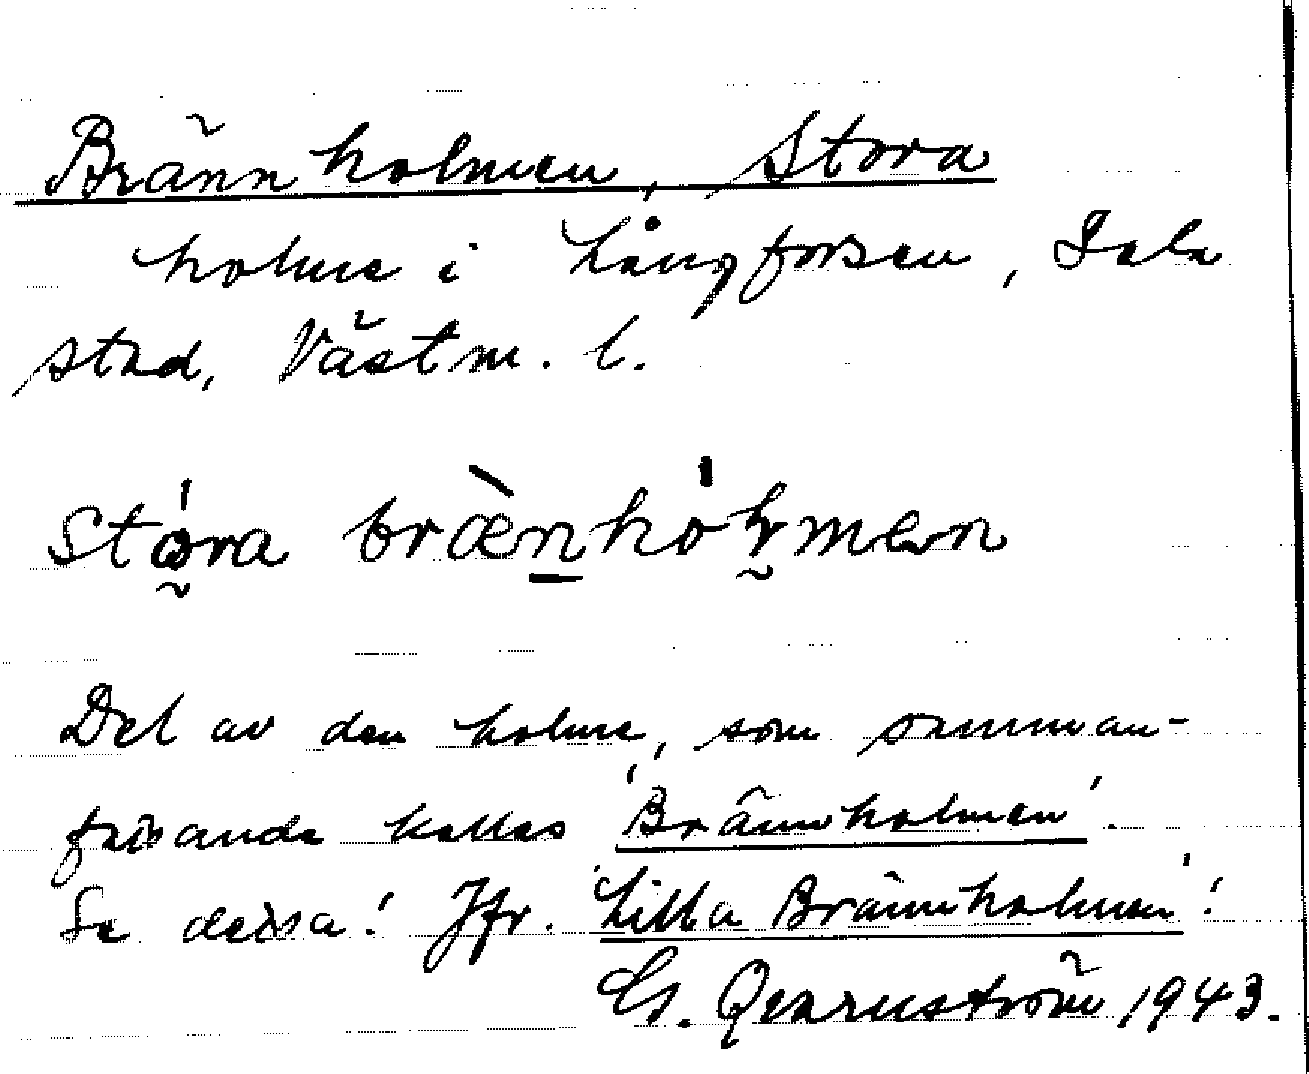 Brännholmen, Stora
holme i Långforsen, Sala
stad, Västm. l.
Stó̰ra bræ̀n̠hó'l̰men
Del av den holme, som samman-
fattande kallas 'Brännholmen'.
Se dessa! Jfr. 'Lilla Brännholmen'!
G. Qvarnström 1943.